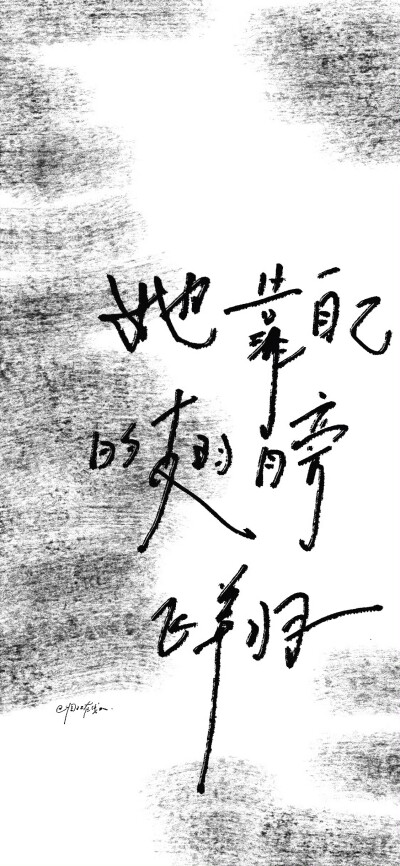 她靠自己
的翅膀
飞翔归